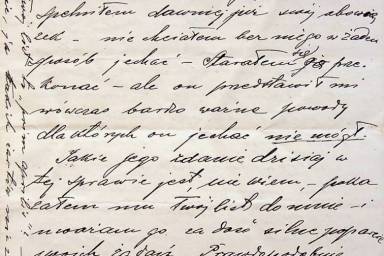 spełniłem dawniej już swój obowią
zek – nie chciałem bez niego w żaden
sposób jechać – Starałem się go prze
konać – ale on przedstawił mi
wówczas bardzo ważne powody
dla których on jechać nie mógł
Jakie jego zdanie dzisiaj w
tej sprawie jest, nie wiem, – poka
załem mu Twój list do mnie i
uważam go za dość silne poparcie
moich żądań Prawdopodobnie